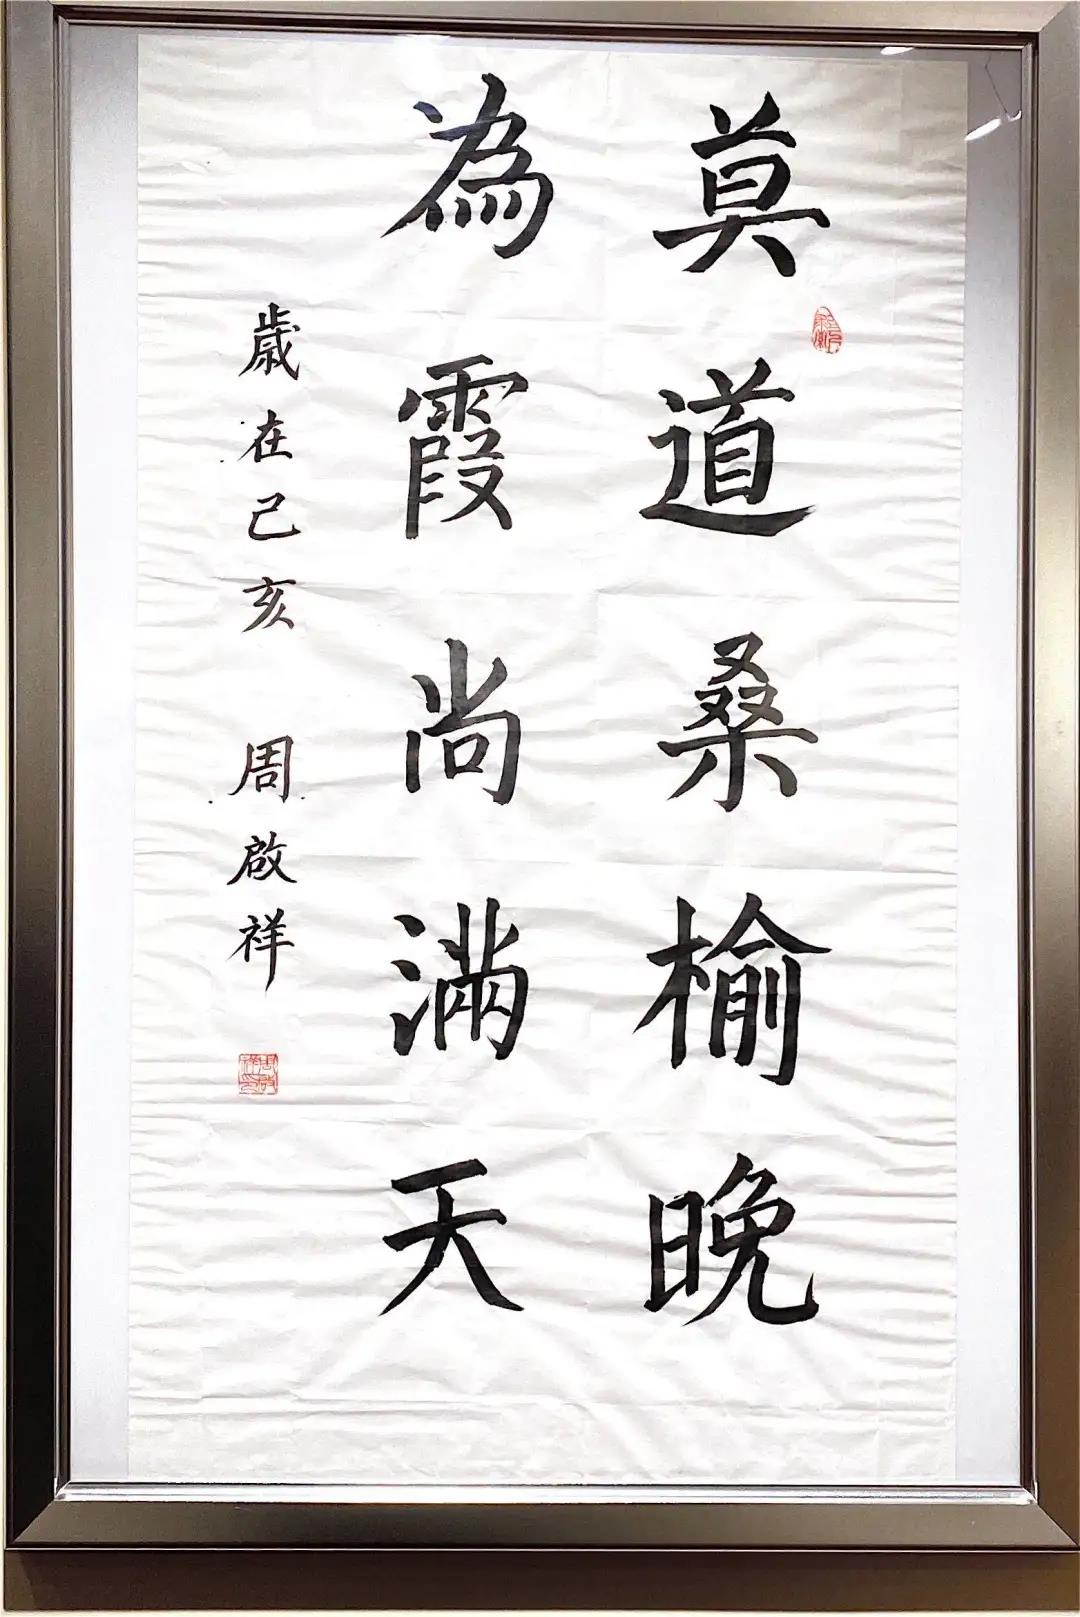 莫道桑榆晚
為霞尚滿天
歲在己亥 周啟祥